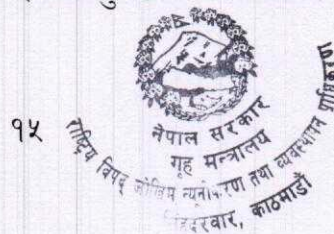 १५
नेपाल सरकार
गृह मन्त्रालय
राष्ट्रिय विपद् जोखिम न्यूनीकरण तथा व्यवस्थापन प्राधिकरण
सिंहदरवार, काठमाडौं